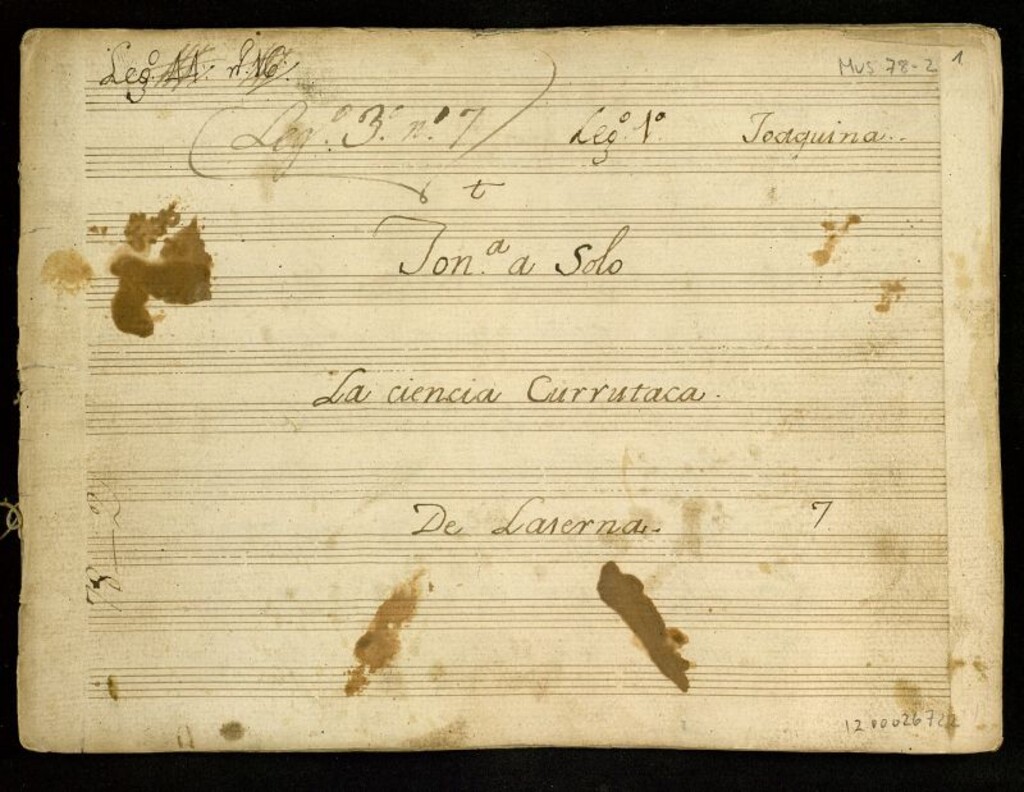 Leg.º 11. nº 16.
Mus 78-2 1
Leg.º 3.º n.º 7 Legº. 1º Joaquina..
t
Ton.ª a Solo
La ciencia Currutaca.
De Laserna. 7
78-2